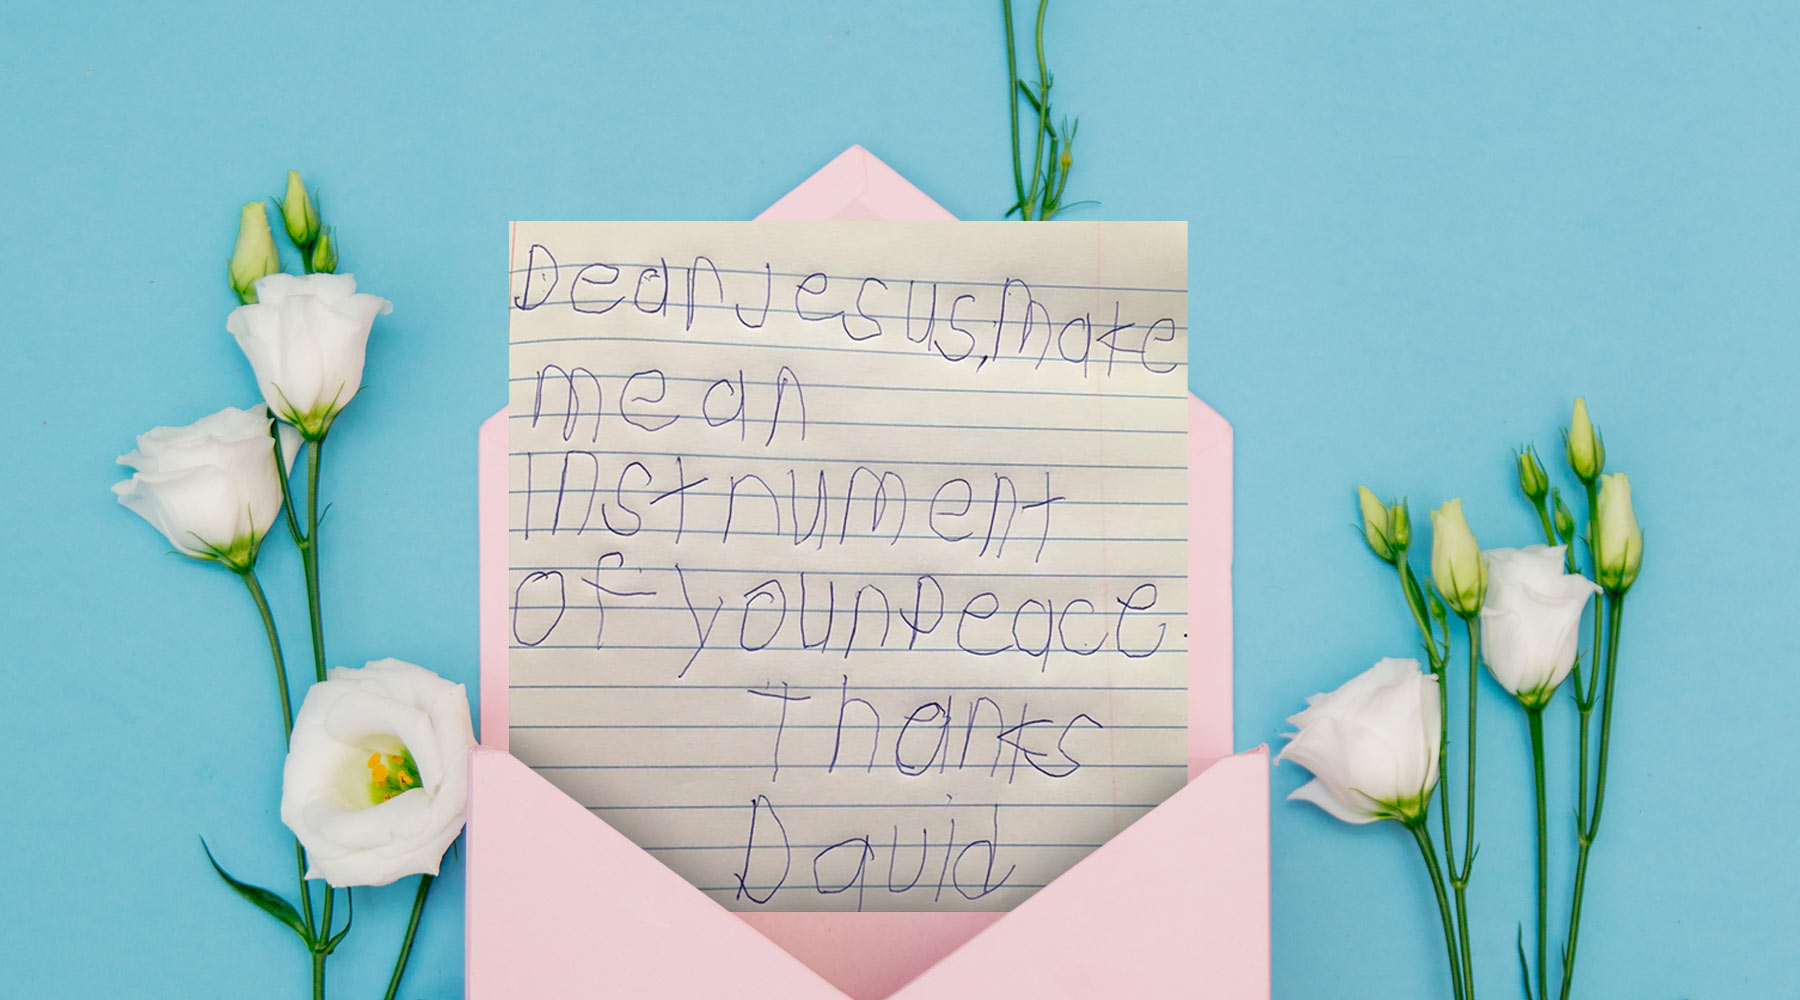 Dear Jesus, Make
me an
Instrument
of your peace.
Thanks
David